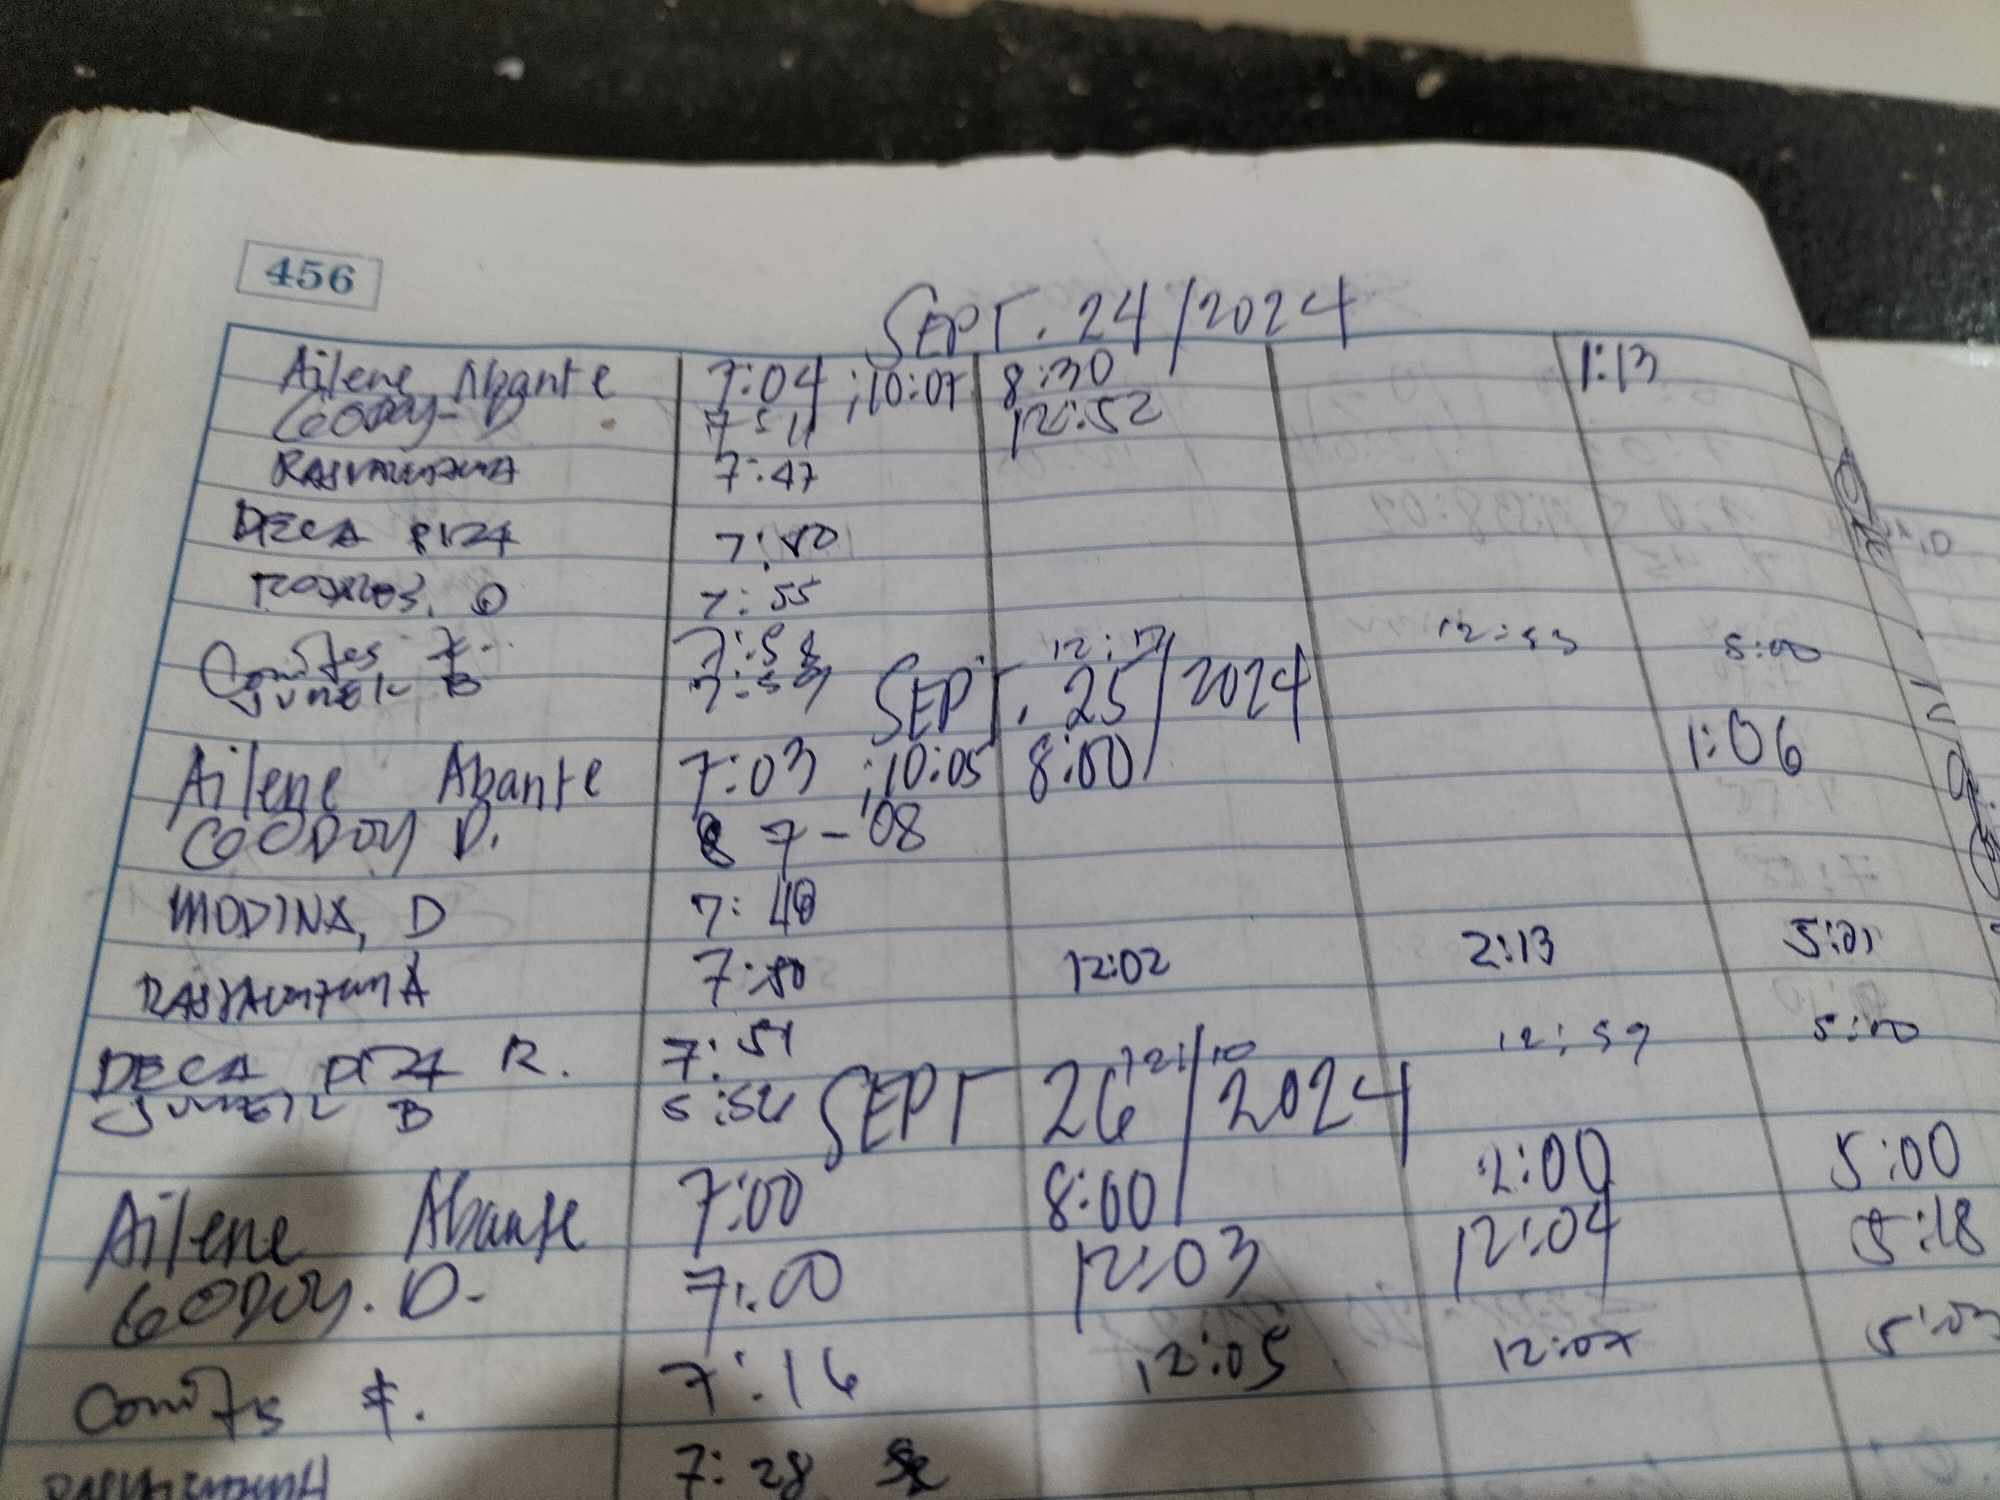 456
SEPT. 24/2024
Ailene Abante 7:04 ; 10:07 8:30 1:13
GODOY-D 7:11 12:52
7:47
DECA 7:50
7:55
Comites F. 7:58
JUNEIL B 7:59 12:17 12:53 5:00
SEPT. 25/2024
Ailene Abante 7:03 ; 10:05 8:00 1:06
GODOY D. 7-08
MODINA, D 7:40
7:50 12:02 2:13 5:01
DECA R. 7:51
JUNEIL B 5:54 12:10 12:59 5:00
SEPT 26/2024
Ailene Abante 7:00 8:00 2:00 5:00
GODOY. D. 7:00 12:03 12:04 5:18
Comites F. 7:16 12:05 12:07 5:03
7:28